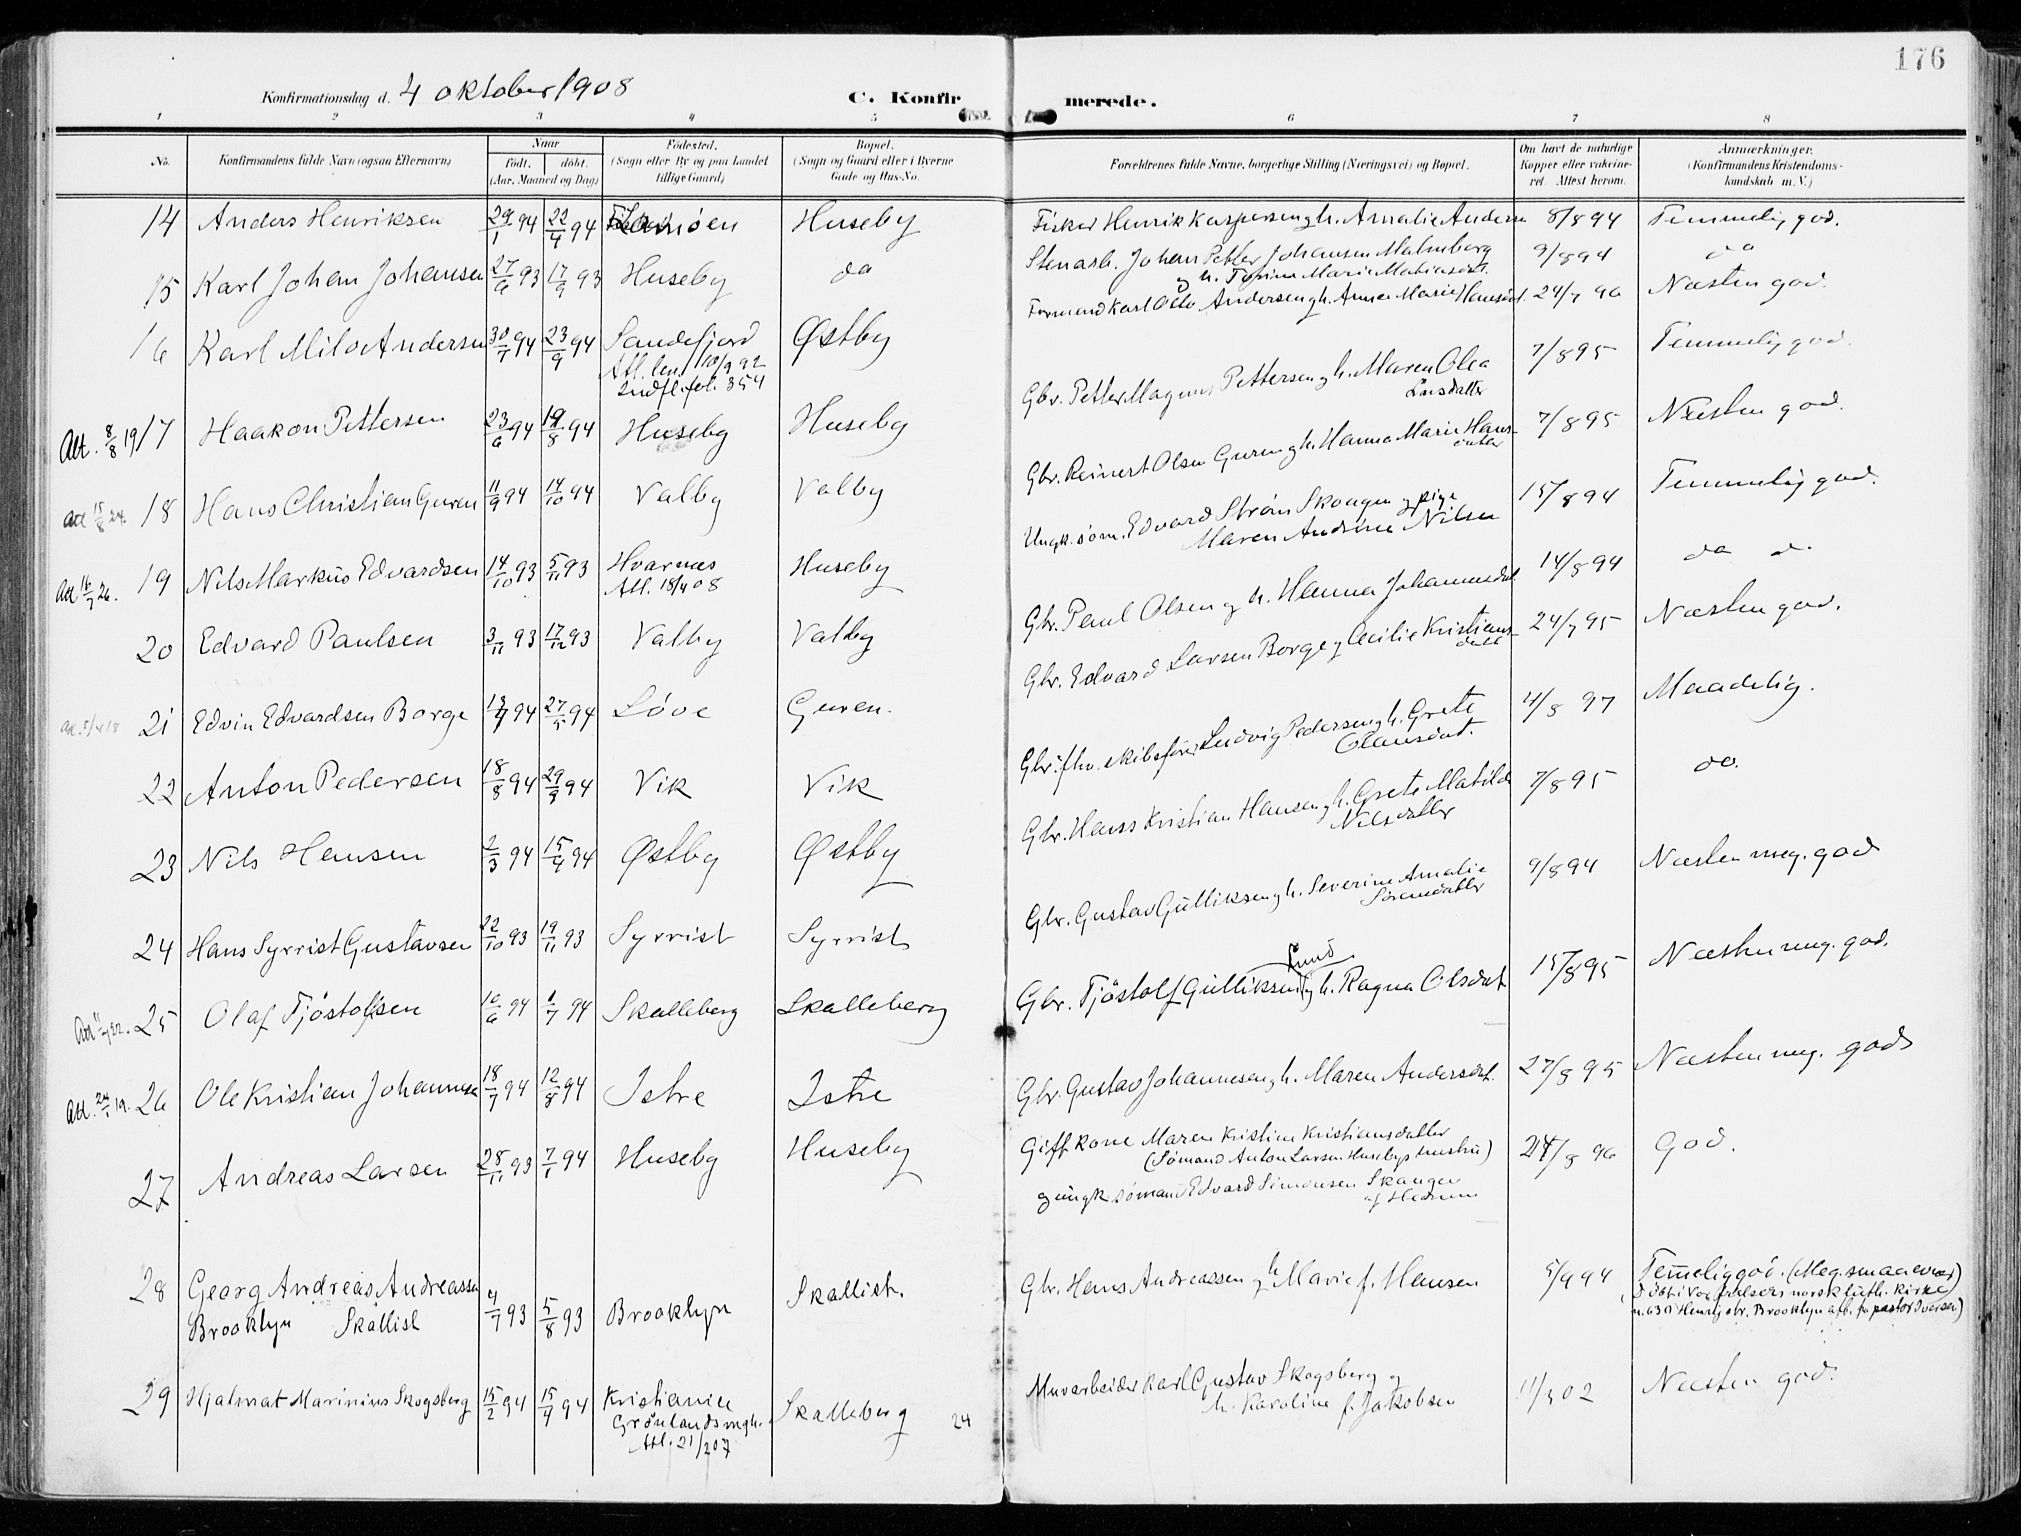 176
Konfirmationsdag d. 4 oktober 1908
C. Konfirmerede.
1 2 3 4 5 6 7 8
No. Konfirmandens fulde Navn (ogsaa Efternavn) Naar født. døbt. (Aar, Maaned og Dag) Fødested. (Sogn eller By og paa Landet tillige Gaard) Bopæl. (Sogn og Gaard eller i Byerne Gade og Hus-No. Forældrenes fulde Navne, borgerlige Stilling (Næringsvei) og Bopæl. Om havt de naturlige Kopper eller vaccineret. Attest herom. Anmærkninger. (Konfirmandens Kristendomskundskab m. V.)
14 Anders Henriksen 29/1 94 22/4 94 Huseby Fisker Henrik Kaspersen og h. Amalie Anderse 8/8 94 Temmelig god.
15 Karl Johan Johansen 27/6 93 17/9 93 Huseby do Stenarb. Johan Petter Johansen Malmberg 9/8 94 do
og h. Torine Marie Matiasdat.
16 Karl Milo Andersen 30/7 94 23/9 94 Sandefjord Østby Formand Karl Otto Andersen og h. Anna Marie Hansdat. 24/7 96 Næsten god.
Att. 10/9 92
Indfl. fol. 354
Att. 8/8 19 17 Haakon Pettersen 23/6 94 19/8 94 Huseby Huseby Gbr. Petter Magnus Pettersen og h. Maren Olea 7/8 95 Temmelig god.
Larsdatter
Att 15/8 24. 18 Hans Christian Guren 11/9 94 14/10 94 Valby Valby Gbr. Reinert Olsen Guren og h. Hanna Marie Hansdatter 7/8 95 Næsten god.
Att 16/7 26. 19 Nils Markus Edvardsen 14/10 93 5/11 93 Hvarnes Huseby Ungk. søm. Edvard Strøm Skaugen og pige 15/8 94 Temmelig god.
Att. 18/4 08 Maren Andrine Nilsen
20 Edvard Paulsen 3/11 93 17/12 93 Valby Valby Gbr. Paul Olsen og h. Hanna Johannesdat. 14/8 94 do d.
Att. 5/4 18 21 Edvin Edvardsen Borge 94 27/5 94 Løve Guren. Gbr. Edvard Larsen Borge og Cecilie Kristiansdatt 24/7 95 Næsten god.
22 Anton Pedersen 18/8 94 29/9 94 Vik Vik Gbr. fhv. skibsfører Ludvig Pedersen og h. Grete 4/8 97 Maadelig.
Olausdat.
23 Nils Hansen 2/3 94 15/4 94 Østby Østby Gbr. Hans Kristian Hansen og h. Grete Matilde 7/8 95 do.
Nilsdatter
24 Hans Syrrist Gustavsen 22/10 93 19/11 93 Syrrist Syrrist Gbr. Gustav Gulliksen og h. Severine Amalie 9/8 94 Næsten meg. god
Sørensdatter
Att 11/7 22. 25 Olaf Tjøstolfsen 10/6 94 1/7 94 Skalleberg Skalleberg Gbr. Tjøstolf Gulliksen Lund og h. Ragna Olsdat. 15/8 95 Næsten meg. god.
Att. 24/1 19. 26 Ole Kristian Johannesen 18/7 94 12/8 94 Istre Istre Gbr. Gustav Johannesen og h. Maren Andersdat. 27/8 95 Næsten meg. god
27 Andreas Larsen 28/11 93 7/1 94 Huseby Huseby Gift kone Maren Kristine Kristiansdatter 24/8 96 God.
(Sømand Anton Larsen Husebys hustru)
og ungk. sømand Edvard Simonsen Skaugen
af Hedrum
28 Georg Andreas Andreassen 4/7 93 5/8 93 Brooklyn Skallist. Gbr. Hans Andreassen og h. Marie f. Hansen 5/9 94 Temelig god. (Meg. smaa evner)
Brooklyn Skallist Døbt i Vor Frelsers norsk luth. kirke
n. 630 Henry str. Brooklyn att. fra pastor Iversen)
29 Hjalmar Marinius Skogsberg 15/2 94 15/4 94 Kristiania Skalleberg 24 Murarbeider Karl Gustav Skogsberg og 11/3 02 Næsten god.
Grønlands mgh. h. Karoline f. Jakobsen
Att. 21/2 07